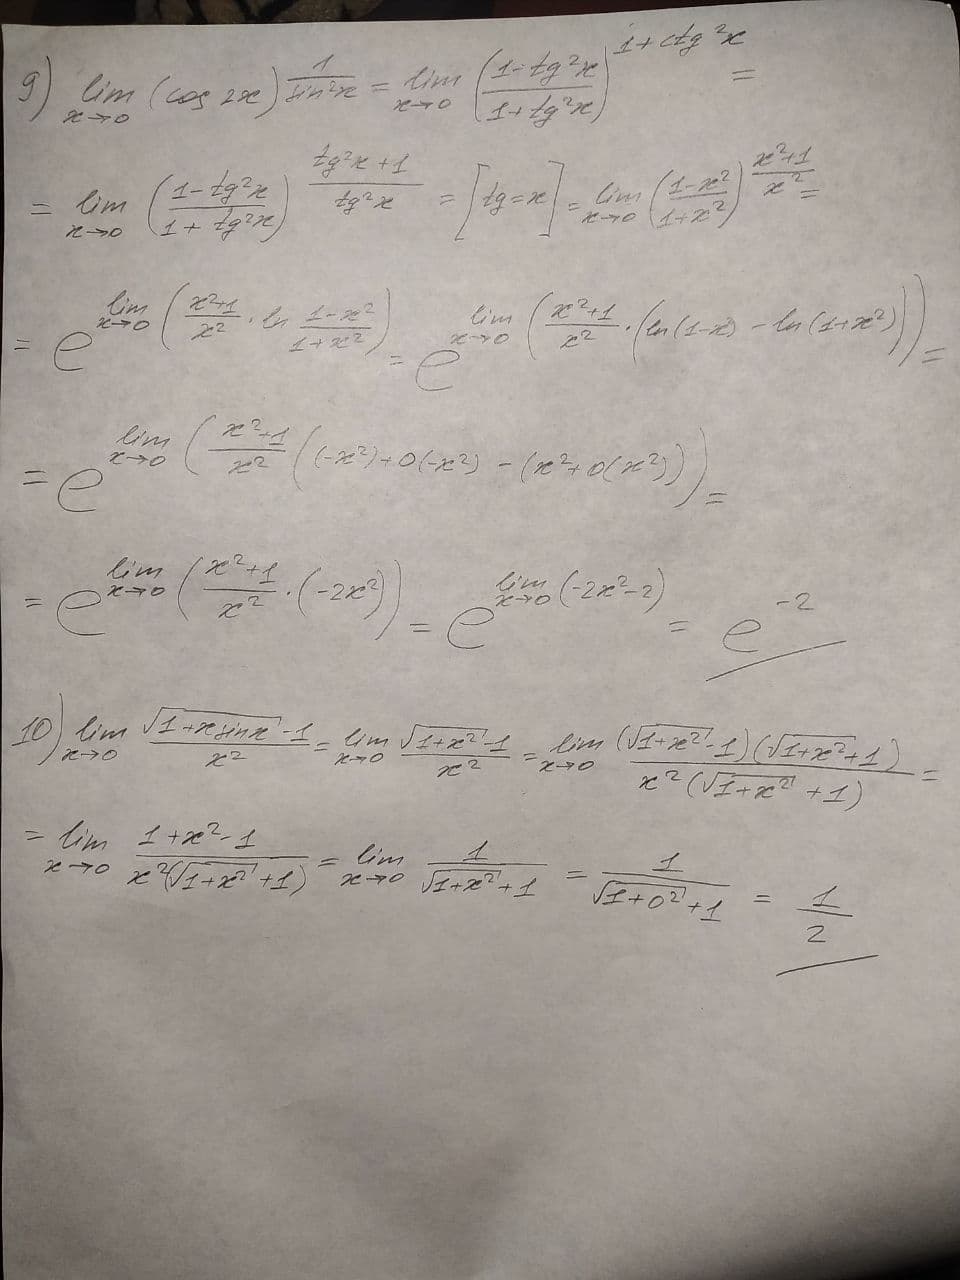 9) lim x→0 (cos 2x)^(1/sin²x) = lim x→0 ((1-tg²x)/(1+tg²x))^(1+ctg²x) =
= lim x→0 ((1-tg²x)/(1+tg²x))^((tg²x+1)/(tg²x)) = [tg=x] = lim x→0 ((1-x²)/(1+x²))^((x²+1)/x²) =
= e^(lim x→0 ((x²+1)/x² · ln (1-x²)/(1+x²))) = e^(lim x→0 ((x²+1)/x² · (ln(1-x) - ln(1+x²)))) =
= e^(lim x→0 ((x²+1)/x² ((-x²)+o(-x²) - (x²+o(x²))))) =
= e^(lim x→0 ((x²+1)/x² · (-2x²))) = e^(lim x→0 (-2x²-2)) = e^(-2)
10) lim x→0 (√(1+x sinx) -1)/x² = lim x→0 (√(1+x²) -1)/x² = lim x→0 ((√(1+x²) -1)(√(1+x²) +1))/(x²(√(1+x²) +1)) =
= lim x→0 (1+x²-1)/(x²(√(1+x²) +1)) = lim x→0 1/(√(1+x²) +1) = 1/(√(1+0²) +1) = 1/2